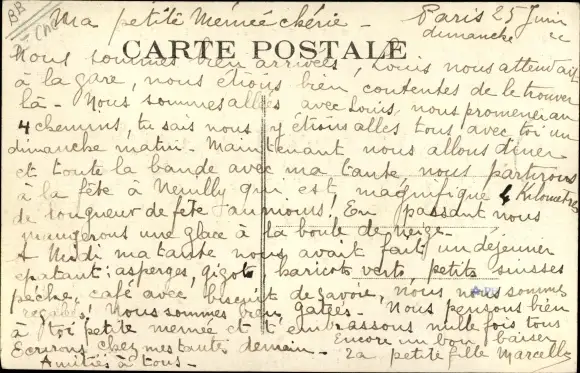 Ma petite Mémée chérie - Paris 25 Juin
dimanche
CARTE POSTALE
Nous sommes bien arrivées, Louis nous attendait
à la gare, nous étions bien contentes de le trouver
là - Nous sommes allées avec Louis, nous promener aux
4 chemins, tu sais nous y étions allés tous avec toi un
dimanche matin - Maintenant nous allons dîner
et toute la bande avec ma tante nous partirons
à la fête à Neuilly qui est magnifique 4 Kilomètres
de longueur de fête au moins! En passant nous
mangerons une glace à la boule de neige -
A Midi ma tante nous avait fait un déjeuner
épatant: asperges, gigot, haricots verts petits suisses
pêche, café avec biscuit de Savoie, nous nous sommes
régalées, Nous sommes bien gâtées - Nous pensons bien
à toi petite mémée et t'embrassons mille fois tous
Encore un bon baiser
Ecrirons chez mes tantes demain - Ta petite fille Marcelle
Amitiés à tous -